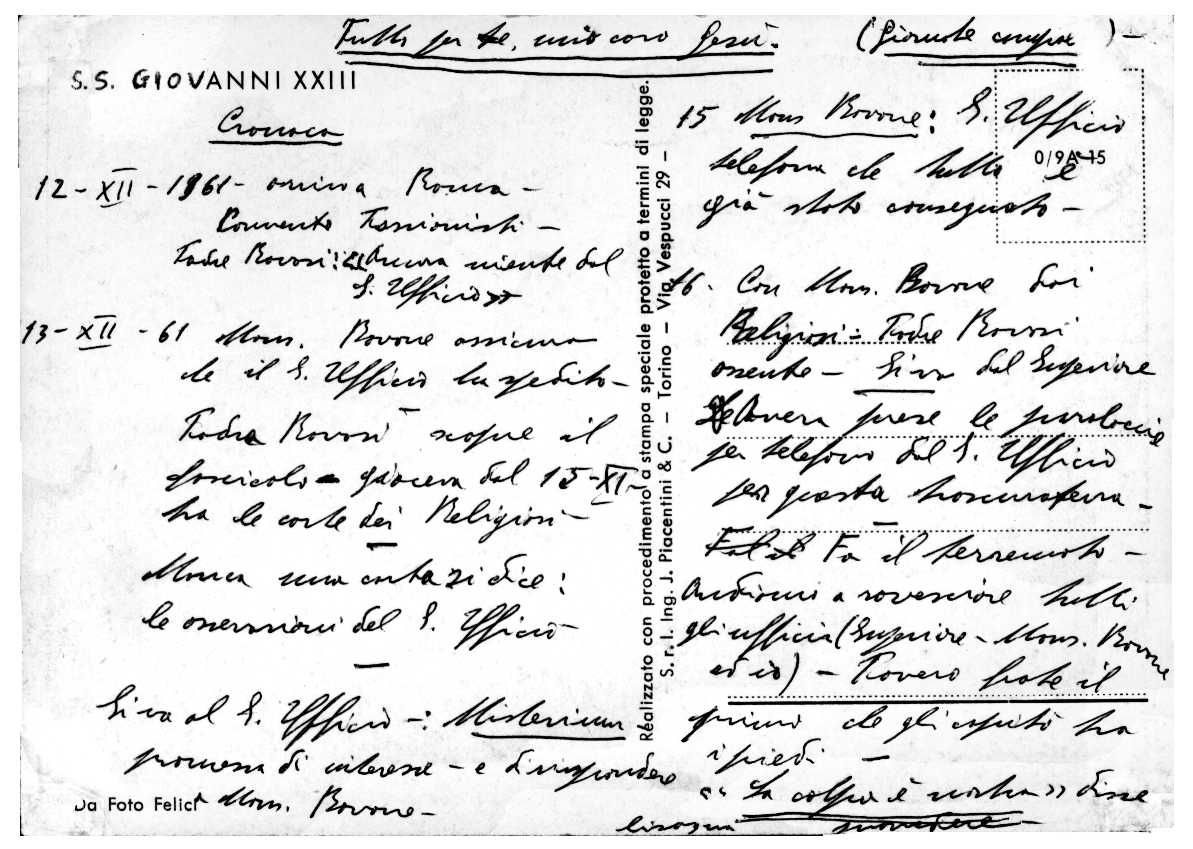 Tutto per te, mio caro Gesù. (Giornate campae) —
S.S. GIOVANNI XXIII
Cronaca
12 - XII - 1961 - arrivo a Roma -
Convento Passionisti -
Padre Ravasi: «Ancora niente dal
S. Ufficio»
13 - XII - 61 Mons. Bovone assicura
che il S. Ufficio ha spedito -
Padre Ravasi scopre il
fascicolo - giaceva dal 15-XI-
tra le carte dei Religiosi -
Manca una carta si dice:
le osservazioni del S. Ufficio
Si va al S. Ufficio -: Misterium
promessa di interesse - e di rispondere
a Mons. Bovone -
Da Foto Felici
Realizzato con procedimento a stampa speciale protetto a termini di legge.
S. r. l. Ing. J. Piacentini & C. - Torino - Via Vespucci 29 -
0/9A-15
15 Mons Bovone: S. Ufficio
telefona che tutto è
già stato consegnato -
16 - Con Mons. Bovone dai
Religiosi: Padre Ravasi
assente - Si va dal Superiore
Aveva prese le parolaccie
per telefono dal S. Ufficio
per questa
Fa il terremoto -
Andiamo a rovesciare tutti
gli uffici (Superiore - Mons. Bovone
ed io) - Povero frate il
primo che gli capitò tra
i piedi -
« La colpa è nostra » disse
bisogna